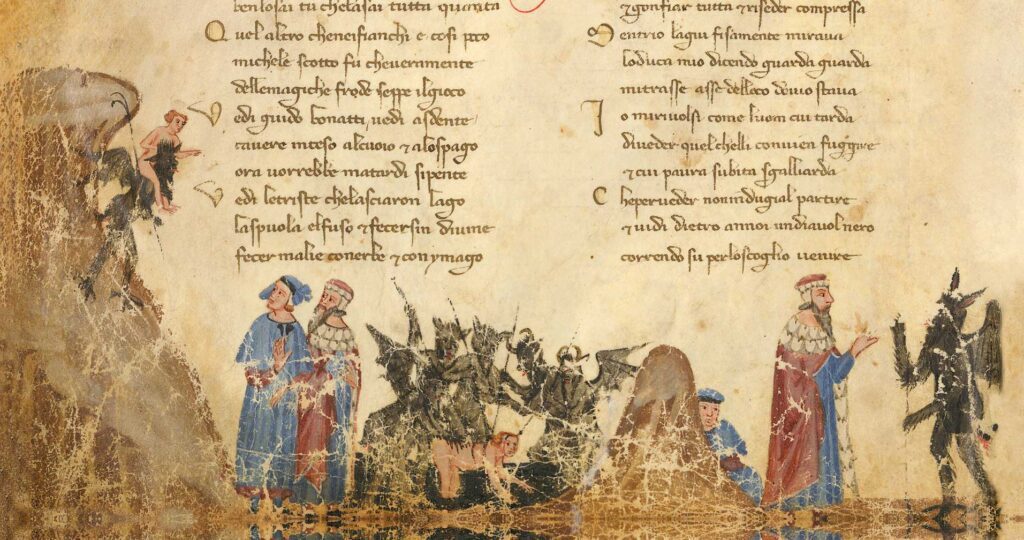 ben lo sai tu che lasai tutta quanta
Quel altro che nei fianchi e cosi pcco
michele scotto fu che veramente
delle magiche frode seppe il gioco
Vedi guido bonatti, vedi asdente
cavere inteso al cuoio & alo spago
ora vorrebbe ma tardi si pente
Vedi le triste che lasciaron lago
la spuola el fuso & fecersin diuine
fecer malie con erbe & con ymago
& gonfiar tutta & riseder compressa
Mentrio lagiu fisamente mirava
lo duca mio dicendo guarda guarda
mi trasse asse del loco dovio stava
Io mi rivolsi come luom cui tarda
di veder quel chelli convien fuggire
& cui paura subita sgalliarda
Che per veder non indugial partire
& vidi dietro a noi un diavol nero
correndo su per lo scoglio venire